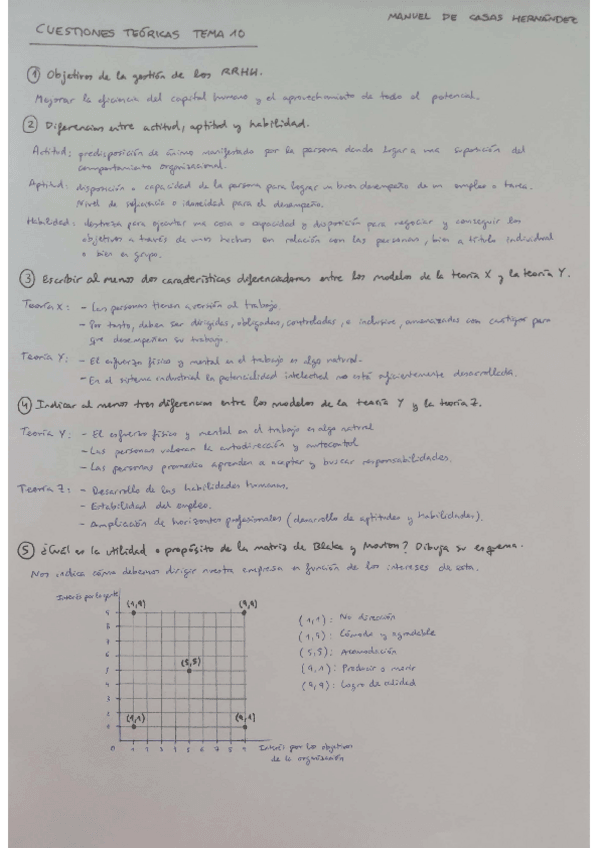 MANUEL DE CASAS HERNÁNDEZ
CUESTIONES TEÓRICAS TEMA 10
① Objetivos de la gestión de los RRHH.
Mejorar la eficiencia del capital humano y el aprovechamiento de todo el potencial.
② Diferencias entre actitud, aptitud y habilidad.
Actitud: predisposición de ánimo manifestado por la persona dando lugar a una suposición del
comportamiento organizacional.
Aptitud: disposición o capacidad de la persona para lograr un buen desempeño de un empleo o tarea.
Nivel de suficiencia o idoneidad para el desempeño.
Habilidad: destreza para ejecutar una cosa o capacidad y disposición para negociar y conseguir los
objetivos a través de unos hechos en relación con las personas, bien a título individual
o bien en grupo.
③ Escribir al menos dos características diferenciadoras entre los modelos de la teoría X y la teoría Y.
Teoría X: - Las personas tienen aversión al trabajo.
- Por tanto, deben ser dirigidas, obligadas, controladas, e inclusive, amenazadas con castigos para
que desempeñen su trabajo.
Teoría Y: - El esfuerzo físico y mental en el trabajo es algo natural.
- En el sistema industrial la potencialidad intelectual no está suficientemente desarrollada.
④ Indicar al menos tres diferencias entre los modelos de la teoría Y y la teoría Z.
Teoría Y: - El esfuerzo físico y mental en el trabajo es algo natural
- Las personas valoran la autodirección y autocontrol
- Las personas promedio aprenden a aceptar y buscar responsabilidades.
Teoría Z: - Desarrollo de las habilidades humanas.
- Estabilidad del empleo.
- Ampliación de horizontes profesionales (desarrollo de aptitudes y habilidades).
⑤ ¿Cuál es la utilidad o propósito de la matriz de Blake y Mouton? Dibuja su esquema.
Nos indica cómo debemos dirigir nuestra empresa en función de los intereses de esta.
Interés por la gente
(1,9) (9,9)
(5,5)
(1,1) (9,1)
9
8
7
6
5
4
3
2
1
0 1 2 3 4 5 6 7 8 9
Interés por los objetivos
de la organización
(1,1): No dirección
(1,9): Cómoda y agradable
(5,5): Acomodación
(9,1): Producir o morir
(9,9): Logro de calidad